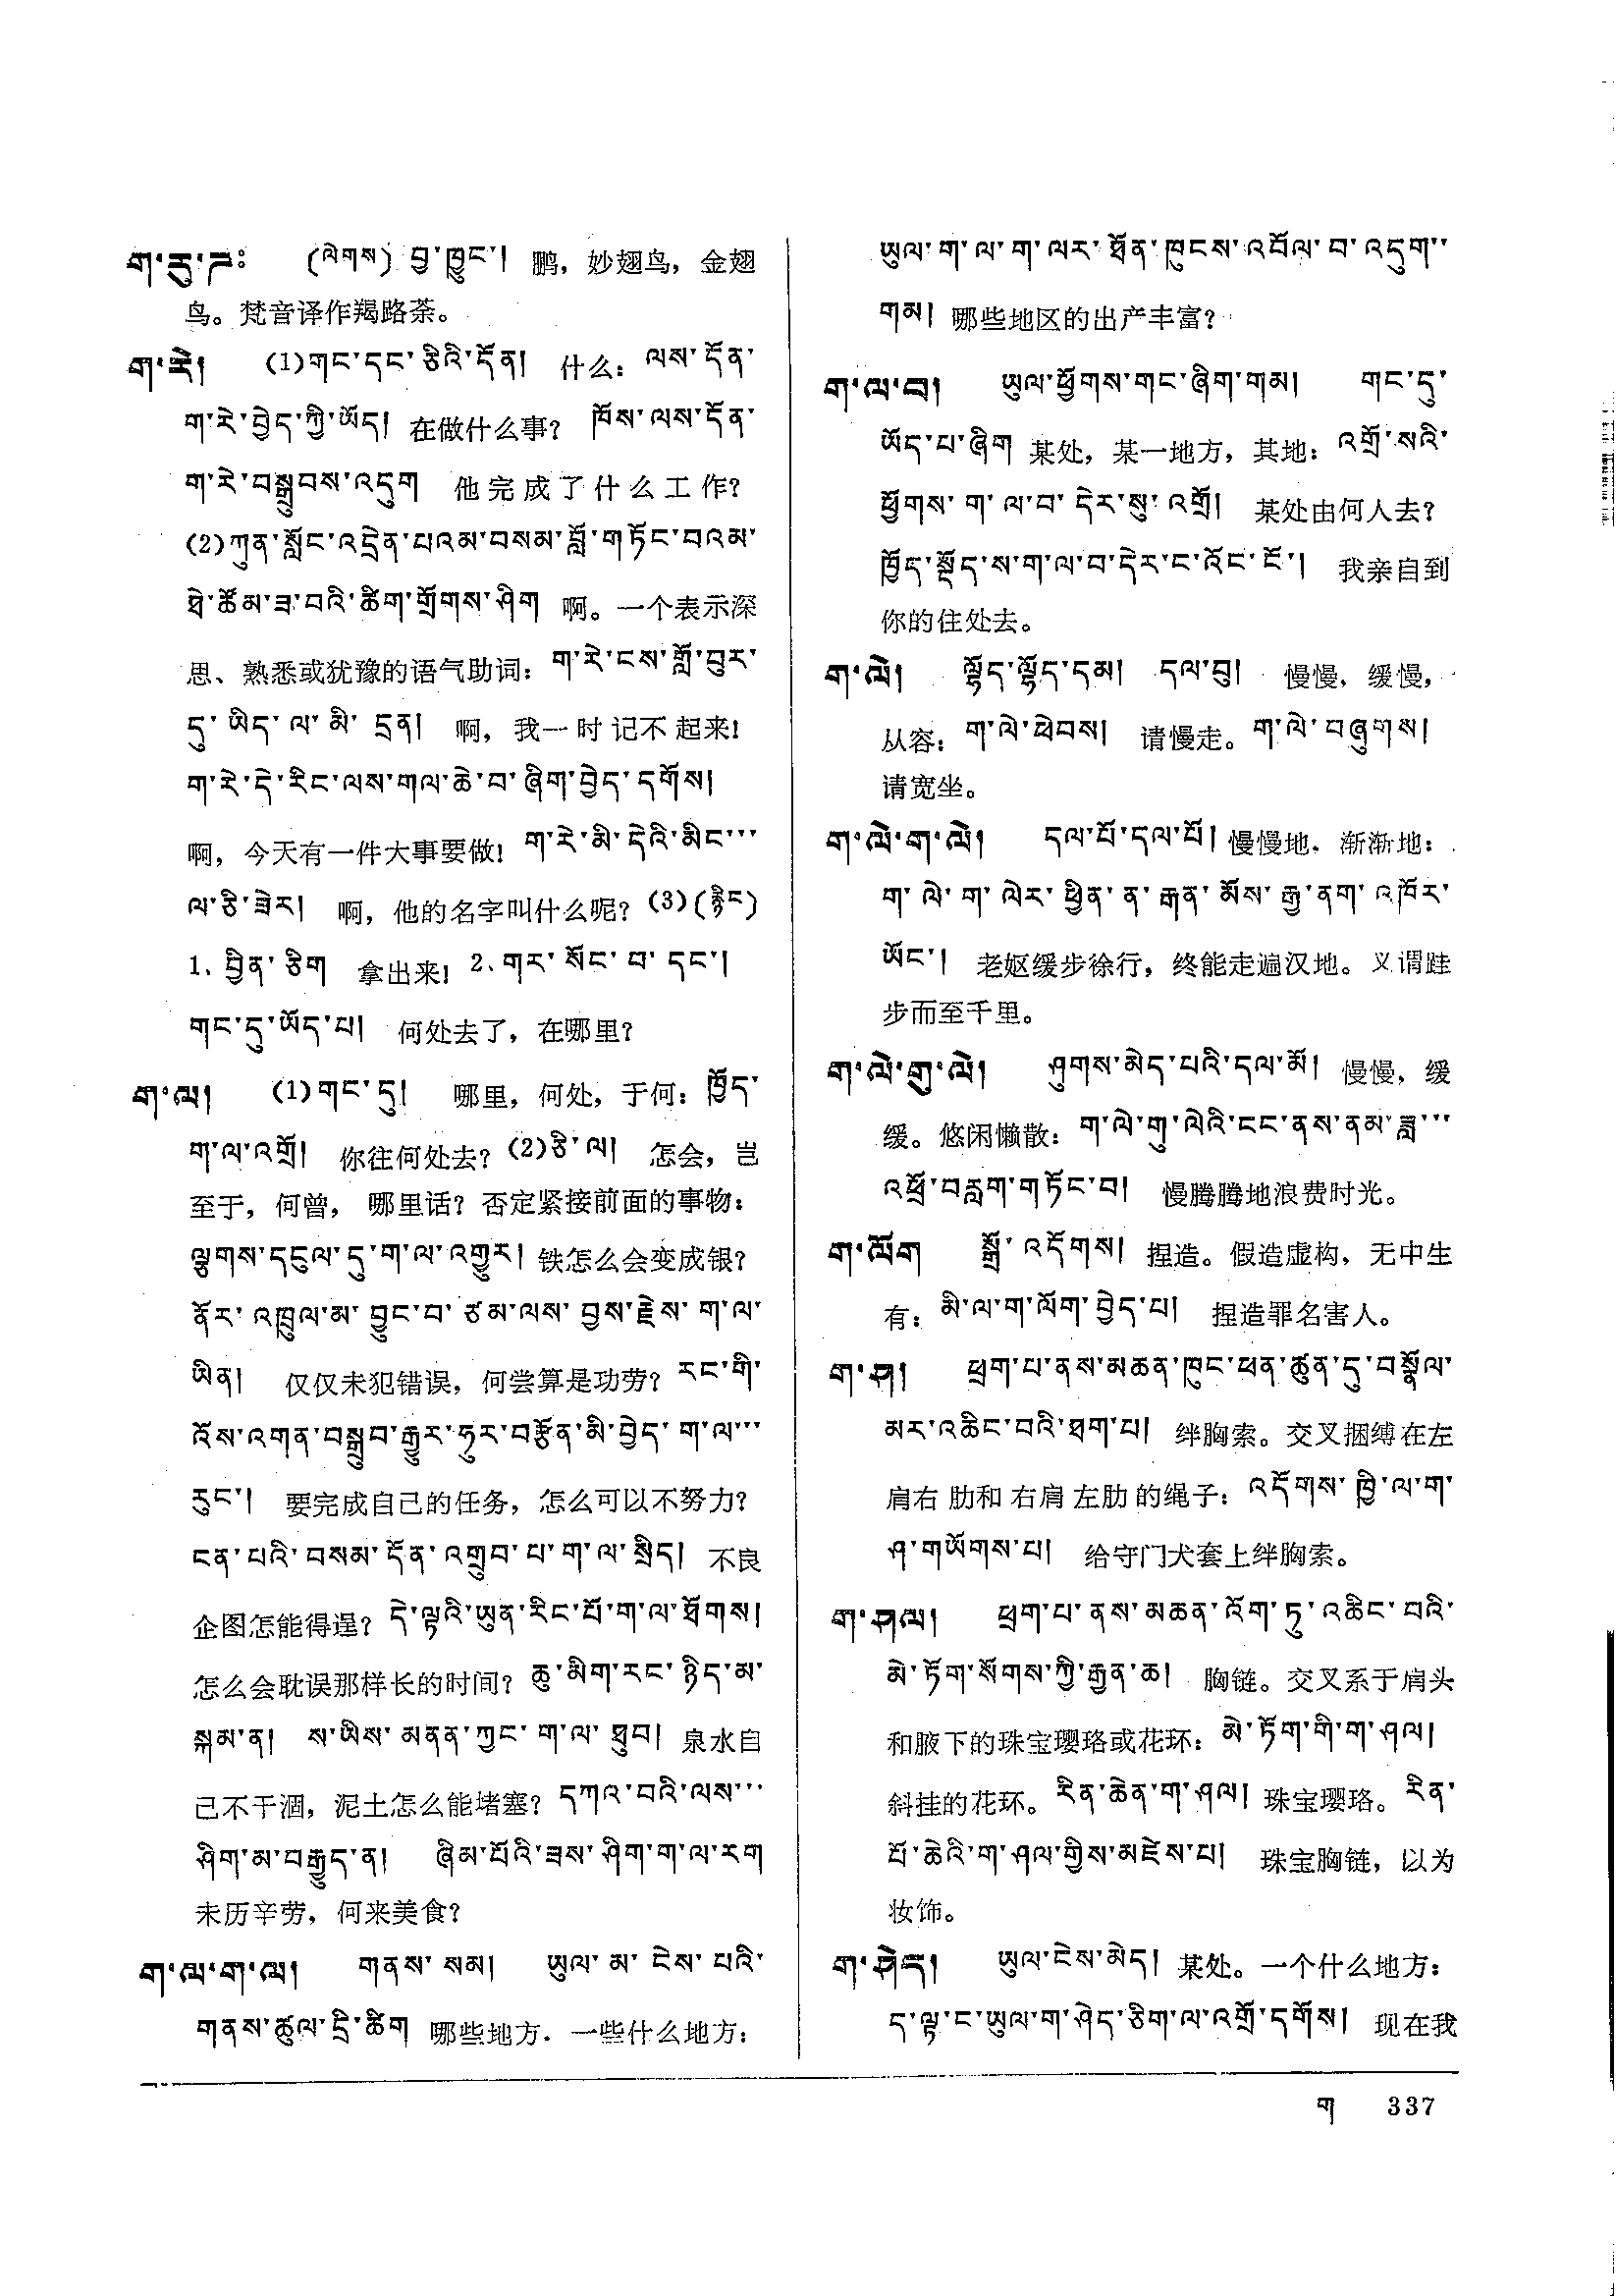 ག་རུ་ཌ༔ (ལེགས) བྱ་ཁྱུང་། 鹏，妙翅鸟，金翅
鸟。梵音译作羯路荼。
ག་རེ། (1)གང་དང་ཅིའི་དོན། 什么：ལས་དོན་
ག་རེ་བྱེད་ཀྱི་ཡོད། 在做什么事？ ཁོས་ལས་དོན་
ག་རེ་བསྒྲུབས་འདུག 他完成了什么工作？
(2)ཀུན་སློང་འདྲེན་པའམ་བསམ་བློ་གཏོང་བའམ་
ཐེ་ཚོམ་ཟ་བའི་ཚིག་གྲོགས་ཤིག 啊。一个表示深
思、熟悉或犹豫的语气助词：ག་རེ་ངས་གློ་བུར་
དུ་ཡིད་ལ་མི་དྲན། 啊，我一时记不起来！
ག་རེ་དེ་རིང་ལས་གལ་ཆེ་བ་ཞིག་བྱེད་དགོས།
啊，今天有一件大事要做！ག་རེ་མི་དེའི་མིང་་་
ལ་ཅི་ཟེར། 啊，他的名字叫什么呢？(3)(རྙིང)
1、བྱིན་ཅིག 拿出来！2、གར་སོང་བ་དང་།
གང་དུ་ཡོད་པ། 何处去了，在哪里？
ག་ལ། (1)གང་དུ། 哪里，何处，于何：ཁྱོད་
ག་ལ་འགྲོ། 你往何处去？(2)ཅི་ལ། 怎会，岂
至于，何曾，哪里话？否定紧接前面的事物：
ལྕགས་དངུལ་དུ་ག་ལ་འགྱུར། 铁怎么会变成银？
ནོར་འཁྲུལ་མ་བྱུང་བ་ཙམ་ལས་བྱས་རྗེས་ག་ལ་
ཡིན། 仅仅未犯错误，何尝算是功劳？རང་གི་
འོས་འགན་བསྒྲུབ་རྒྱུར་ཧུར་བརྩོན་མི་བྱེད་ག་ལ་་་
རུང་། 要完成自己的任务，怎么可以不努力？
ངན་པའི་བསམ་དོན་འགྲུབ་པ་ག་ལ་སྲིད། 不良
企图怎能得逞？དེ་ལྟའི་ཡུན་རིང་པོ་ག་ལ་ཐོགས།
怎么会耽误那样长的时间？ཆུ་མིག་རང་ཉིད་མ་
སྐམ་ན། ས་ཡིས་མནན་ཀྱང་ག་ལ་ཐུབ། 泉水自
己不干涸，泥土怎么能堵塞？དཀའ་བའི་ལས་་་
ཤིག་མ་བརྒྱུད་ན། ཞིམ་པོའི་ཟས་ཤིག་ག་ལ་རག
未历辛劳，何来美食？
ག་ལ་ག་ལ། གནས་སམ། ཡུལ་མ་ངེས་པའི་
གནས་ཚུལ་དྲི་ཚིག 哪些地方．一些什么地方：
ཡུལ་ག་ལ་ག་ལར་ཐོན་ཁུངས་འབོལ་བ་འདུག་་
གམ། 哪些地区的出产丰富？
ག་ལ་བ། ཡུལ་ཕྱོགས་གང་ཞིག་གམ། གང་དུ་
ཡོད་པ་ཞིག 某处，某一地方，其地：འགྲོ་སའི་
ཕྱོགས་ག་ལ་བ་དེར་སུ་འགྲོ། 某处由何人去？
ཁྱོད་སྡོད་ས་ག་ལ་བ་དེར་ང་འོང་ངོ་། 我亲自到
你的住处去。
ག་ལེ། ལྷོད་ལྷོད་དམ། དལ་བུ། 慢慢，缓慢，
从容：ག་ལེ་ཕེབས། 请慢走。ག་ལེ་བཞུགས།
请宽坐。
ག་ལེ་ག་ལེ། དལ་པོ་དལ་པོ། 慢慢地．渐渐地：
ག་ལེ་ག་ལེར་ཕྱིན་ན་རྒན་མོས་རྒྱ་ནག་འཁོར་
ཡོང་། 老妪缓步徐行，终能走遍汉地。义谓跬
步而至千里。
ག་ལེ་གུ་ལེ། ཤུགས་མེད་པའི་དལ་མོ། 慢慢，缓
缓。悠闲懒散：ག་ལེ་གུ་ལེའི་ངང་ནས་ནམ་ཟླ་་་
འཕྲོ་བརླག་གཏོང་བ། 慢腾腾地浪费时光。
ག་ལོག སྒྲོ་འདོགས། 捏造。假造虚构，无中生
有：མི་ལ་ག་ལོག་བྱེད་པ། 捏造罪名害人。
ག་ཤ། ཕྲག་པ་ནས་མཆན་ཁུང་ཕན་ཚུན་དུ་བསྣོལ་
མར་འཆིང་བའི་ཐག་པ། 绊胸索。交叉捆缚在左
肩右肋和右肩左肋的绳子：འདོགས་ཁྱི་ལ་ག་
ཤ་གཡོགས་པ། 给守门犬套上绊胸索。
ག་ཤལ། ཕྲག་པ་ནས་མཆན་འོག་ཏུ་འཆིང་བའི་
མེ་ཏོག་སོགས་ཀྱི་རྒྱན་ཆ། 胸链。交叉系于肩头
和腋下的珠宝璎珞或花环：མེ་ཏོག་གི་ག་ཤལ།
斜挂的花环。རིན་ཆེན་ག་ཤལ། 珠宝璎珞。རིན་
པོ་ཆེའི་ག་ཤལ་གྱིས་མཛེས་པ། 珠宝胸链，以为
妆饰。
ག་ཤེད། ཡུལ་ངེས་མེད། 某处。一个什么地方：
ད་ལྟ་ང་ཡུལ་ག་ཤེད་ཅིག་ལ་འགྲོ་དགོས། 现在我
ག 337